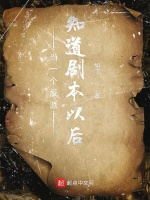 当一个反派
知道剧本以后
起点中文网